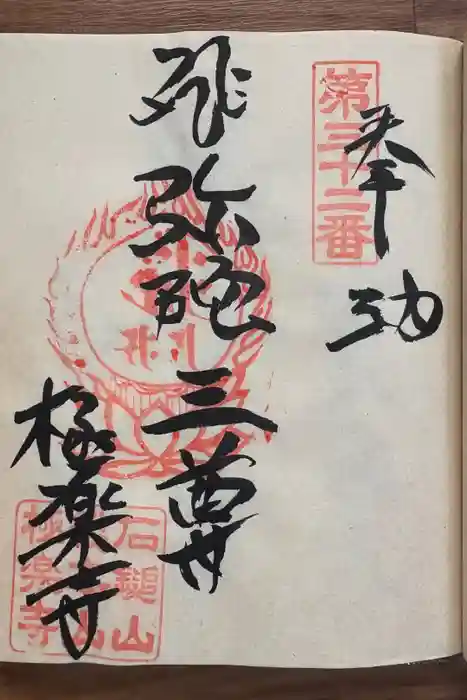 第三十二番
奉
弥陀三尊
極楽寺
石鎚山
極楽寺